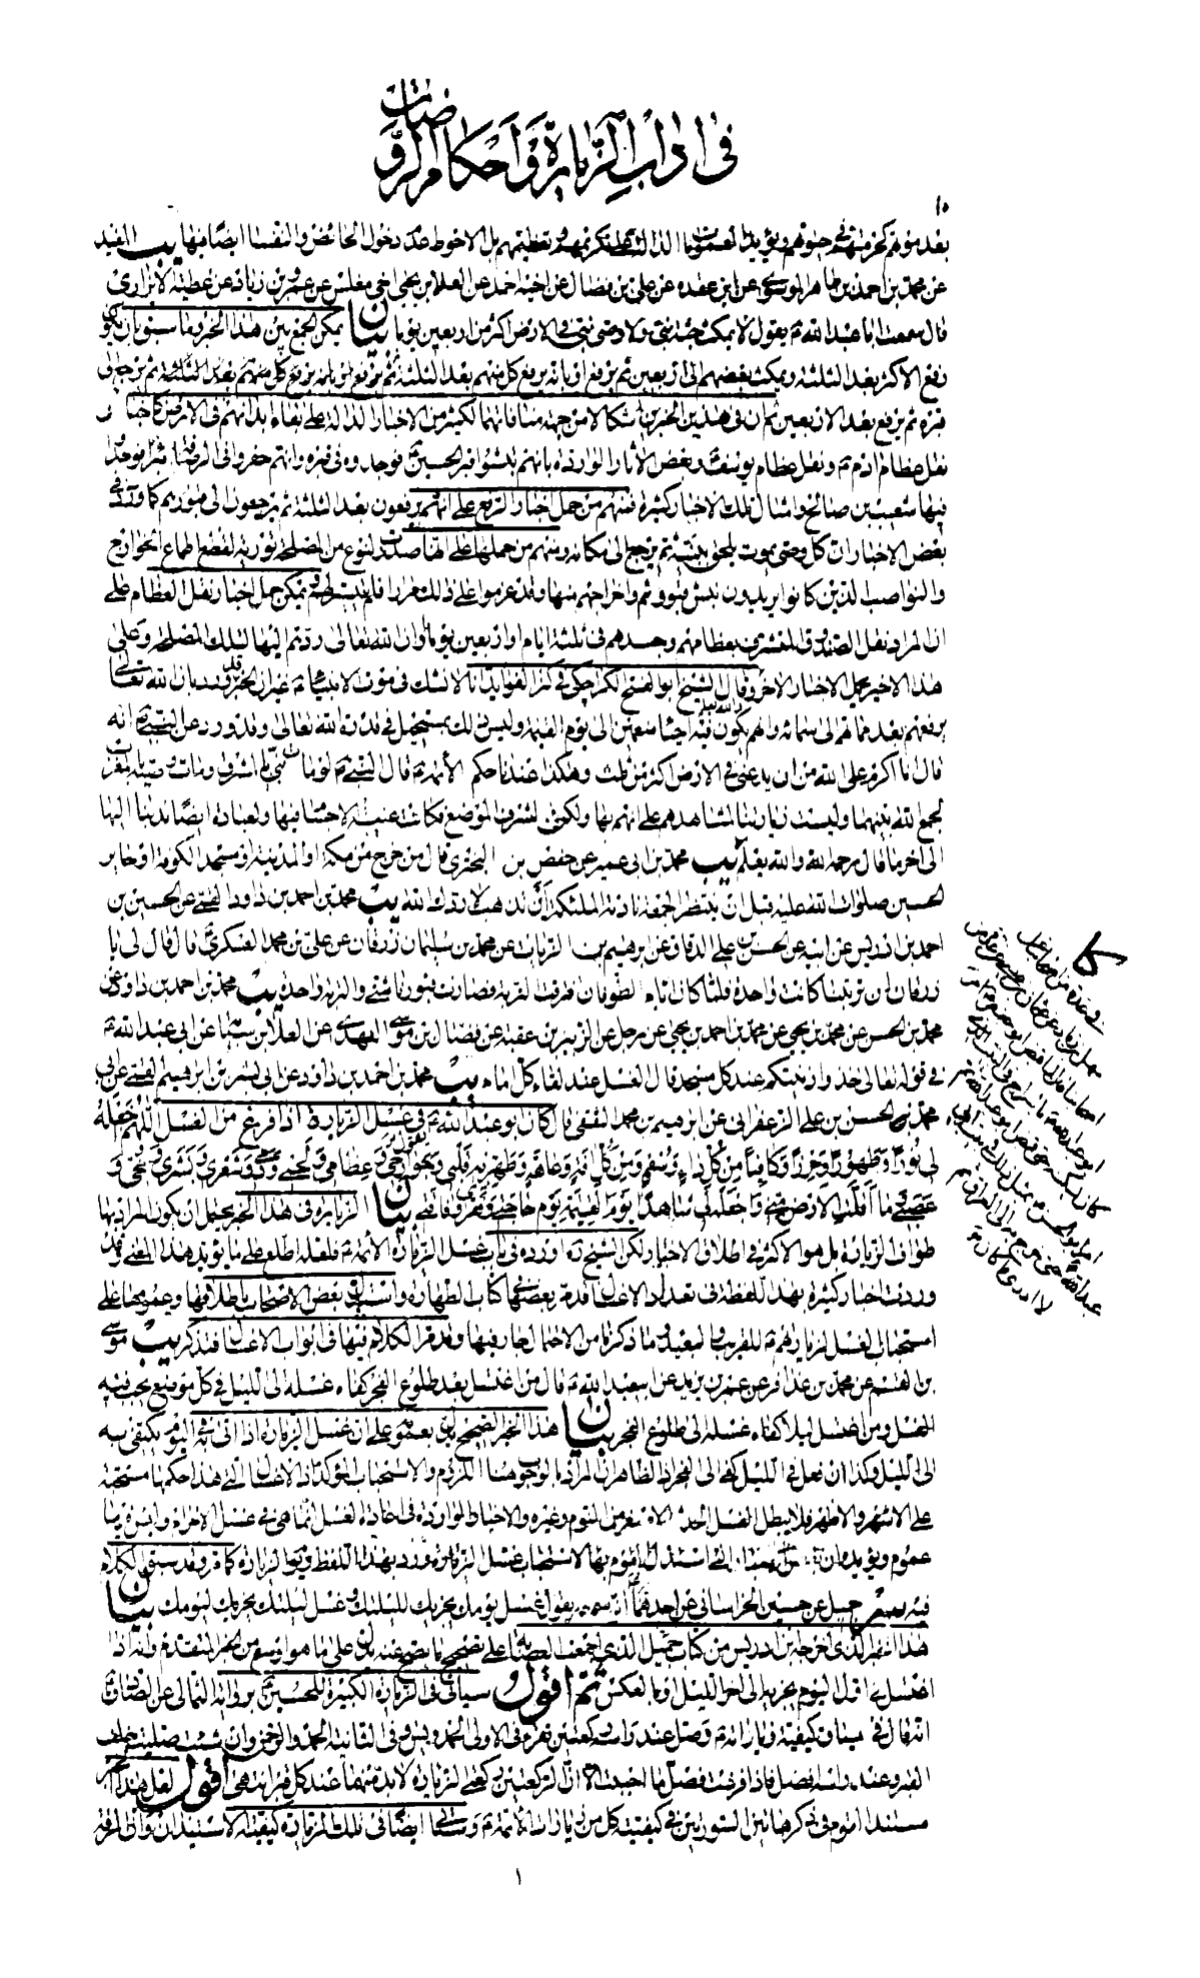 في اداب الزيارة و احكام الروضات
١٠
بعد موتهم كحرمتهم في حيوتهم ويؤيده العمومات الدالة على تكريمهم وتعظيمهم بل الاحوط عدم دخول الحائض والنفساء ايضا فيها يب المفيد
عن محمد بن احمد بن طاهر الموسوي عن ابن عقدة عن علي بن فضال عن اخيه احمد عن العلا بن يحيى اخي مغلس عن عمرو بن زياد عن عطية الابزاري
قال سمعت ابا عبد الله ع يقول لا يمكث جثة نبي ولا وصي نبي في الارض اكثر من اربعين يوما بيان يمكن الجمع بين هذا الخبر وما سبق بان يكون
رفع الاكثر بعد الثلثة ويمكث بعضهم الى اربعين ثم يرفع او بانه يرفع كل منهم بعد الثلثة ثم يرجع الى
قبره ثم يرفع بعد الاربعين ثم ان في هذين الخبرين اشكالا من جهة منافاتهما لكثير من الاخبار الدالة على بقاء ابدانهم في الارض كاخبار
نقل عظام ادم ع ونقل عظام يوسف ع وبعض الآثار الواردة بانهم نبشوا قبر الحسين ع فوجدوه في قبره وانهم حفروا في الرصافة بئرا فوجدوا
فيها شعيب بن صالح وامثال تلك الاخبار كثيرة فمنهم من حمل اخبار الرفع على انهم يرفعون بعد الثلثة ثم يرجعون الى قبورهم كما ورد في
بعض الاخبار ان كل وصي يموت يلحق بنبيه ثم يرجع الى مكانه ومنهم من حملها على انها صدرت لنوع من المصلحة تورية لقطع اطماع الخوارج
والنواصب الذين كانوا يريدون نبش قبورهم واخراجهم منها وقد عزموا على ذلك مرارا فلم يتيسر لهم ويمكن حمل اخبار نقل العظام على
ان المراد نقل الصندوق المتشرف بعظامهم وجسدهم في ثلثة ايام او اربعين يوما وان الله تعالى ردهم اليها لتلك المصلحة وعلى
هذا الاخير يحمل الاخبار الاخر وقال الشيخ ابو الفتح الكراجكي في كنز الفوائد انا لا نشك في موت الانبياء ع غير ان الخبر قد ورد بان الله تعالى
يرفعهم بعد مماتهم الى سمائه وانهم يكونون فيها احياء منعمين الى يوم القيمة وليس ذلك بمستحيل في قدرة الله تعالى وقد ورد عن النبي ص انه
قال انا اكرم على الله من ان يدعني في الارض اكثر من ثلث وهكذا عندنا حكم الأئمة ع قال النبي ص لو مات نبي بالمشرق ومات وصيه بالمغرب
لجمع الله بينهما وليست زيارتنا لمشاهدهم على انهم بها ولكن لشرف الموضع فكانت غيبة الاجسام فيها ولعبادة ايضا ندبنا اليها
الى اخر ما قال رحمه الله والله يعلم يب محمد بن ابي عمير عن حفص بن البختري قال من خرج من مكة او المدينة او مسجد الكوفة او حاير
الحسين صلوات الله عليه قبل ان ينتظر الجمعة نادته الملئكة اين تذهب لا ردك الله يب محمد بن احمد بن داود القمي عن الحسين بن
احمد بن ادريس عن ابيه عن الحسن بن علي الدقاق عن ابرهيم بن الزيات عن محمد بن سليمان زرقان عن علي بن محمد العسكري ع قال قال لي يا
زرقان ان تربتنا كانت واحدة فلما كان ايام الطوفان افترقت التربة فصارت قبورنا شتى والتربة واحدة يب محمد بن احمد بن داود عن
محمد بن الحسن عن محمد بن يحيى عن محمد بن احمد بن يحيى عن رجل عن الزبير بن عقبة عن فضال بن موسى النهدي عن العلا بن سيابة عن ابي عبد الله ع
في قوله تعالى خذوا زينتكم عند كل مسجد قال الغسل عند لقاء كل امام يب محمد بن احمد بن داود عن ابي بشير بن ابرهيم القمي عن ابي
محمد بن الحسن بن علي الزعفراني عن ابرهيم بن محمد الثقفي قال كان ابو عبد الله ع يقول في غسل الزيارة اذا فرغ من الغسل اللهم اجعله
لي نورا وطهورا وحرزا وكافيا من كل داء وسقم ومن كل آفة وعاهة وطهر به قلبي وجوارحي وعظامي ولحمي ودمي وشعري وبشري ومخي و
عصبي وما اقلت الارض مني واجعل لي شاهدا يوم القيمة يوم حاجتي وفقري وفاقتي بيان الزيارة في هذا الخبر يحتمل ان يكون المراد بها
طواف الزيارة بل هو الاكثر في اطلاق الاخبار لكن الشيخ ره اورده في باب غسل الزيارة الأئمة ع فلعله اطلع على ما يؤيد هذا المعنى وقد
وردت اخبار كثيرة بهذا اللفظ في تعداد الاغسال قد مر بعضها في كتاب الطهارة واستدل بعض الاصحاب باطلاقها وعمومها على
استحباب الغسل لزيارتهم ع للقريب والبعيد وما ذكرنا من الاحتمال جار فيها وقد مر الكلام فيها في ابواب الاغسال فتذكر يب موسى
بن القسم عن محمد بن عذافر عن عمر بن يزيد عن ابي عبد الله ع قال من اغتسل بعد طلوع الفجر كفاه غسله الى الليل في كل موضع يجب فيه
الغسل ومن اغتسل ليلا كفاه غسله الى طلوع الفجر بيان هذا الخبر الصحيح يدل بعمومه على ان غسل الزيارة اذا اتى به في اليوم يكتفى به
الى الليل وكذا ان فعل في الليل كفى الى الفجر اذ الظاهر ان المراد بالوجوب هنا اللزوم والاستحباب المؤكد اذ الاغسال التي هذا حكمها مستحبة
على الاشهر والاظهر فلا يبطل الغسل الحدث الاصغر من النوم وغيره والاخبار الواردة في اعادة الغسل انما هي في غسل الاحرام وليس فيها
عموم ويؤيده ان الاخبار التي استدل القوم بها لاستحباب غسل الزيارة ورد بهذا اللفظ ويوم الزيارة كما مر وقد سبق الكلام
فيه سر جميل عن حسين الخراساني عن احدهما ع انه سمعه يقول غسل يومك يجزيك لليلتك وغسل ليلتك يجزيك ليومك بيان
هذا الخبر الذي اخرجه ابن ادريس من كتاب جميل الذي اجمعت العصابة على تصحيح ما يصح عنه يدل على ما هو اوسع من الخبر المتقدم وانه اذا
اغتسل في اول اليوم يجزيه الى اخر الليل وبالعكس ثم اقول سيأتي في الزيارة الكبيرة للحسين ع برواية الثمالي عن الصادق ع
انه قال في سياق كيفية زيارته ع وصل عند رأسه ركعتين تقرأ في الاولى الحمد ويس وفي الثانية الحمد والرحمن وان شئت صليت خلف
القبر وعند رأسه افضل فاذا فرغت فصل ما احببت الا ان الركعتين ركعتي الزيارة لا بد منهما عند كل قبر انتهى اقول لعل هذا الخبر
مستند القوم في ذكر هاتين السورتين في كيفية كل من زيارات الأئمة ع وسيأتي ايضا في تلك الزيارة كيفية الاستيذان والدخول الى القبر
كا
١